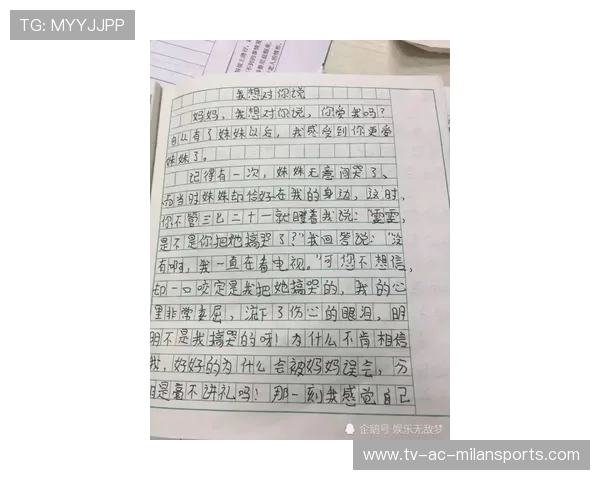 TG: MYYJJPP
我想对你说
妈妈，我想对你说，你爱我吗？
自从有了妹妹以后，我感受到你更爱
妹妹了。
记得有一次，妹妹无意间哭了，
而当时妹妹却恰好在我的身边，这时，
你不管三七二十一就瞪着我说：“雷雷，
是不是你把她搞哭了？”我回答说：“没
有啊，我一直在看电视。”可您不想信，
却一口咬定是我把她搞哭的，我的心
里非常委屈，流下了伤心的眼泪，明
明不是我搞哭的呀！为什么不肯相信
我，好好的为什么会被妈妈误会，分
明是毫不讲礼吗！那一刻我感觉自己
企鹅号 娱乐无敌梦
www.tv-ac-milansports.com